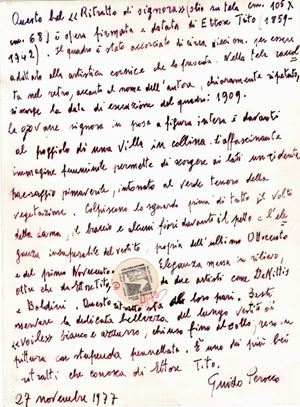 Questo bel «Ritratto di signora» (olio su tela cm. 105 x
cm. 68) è opera firmata e datata di Ettore Tito (1859-
1942). Il quadro è stato accorciato di circa dieci cm. per essere
adattato alla artistica cornice che lo presenta. Nella tela
nel retro, accanto al nome dell'autore, chiaramente ripetuto,
si scorge la data di esecuzione del quadro: 1909.
La giovane signora in posa a figura intera è davanti
al poggiolo di una villa in collina. L'affascinante
immagine femminile permette di scorgere ai lati un ridente
paesaggio primaverile, intonato al verde tenero della
vegetazione. Colpiscono lo sguardo prima di tutto il volto
della dama, il braccio e alcuni fiori davanti il petto e l'ele
ganza insuperabile del vestito propria dell'ultimo Ottocento
e del primo Novecento. Eleganza messa in rilievo,
oltre che da Ettore Tito, da due artisti come De Nittis
e Boldini. Questo ritratto sta alla loro pari. Basti
osservare la delicata bellezza del lungo vestito di
«voile» bianco e azzurro, chiuso fino al collo, reso in
pittura con stupenda pennellata. È uno dei più bei
ritratti che conosca di Ettore Tito.
Guido Perocco
27 novembre 1977